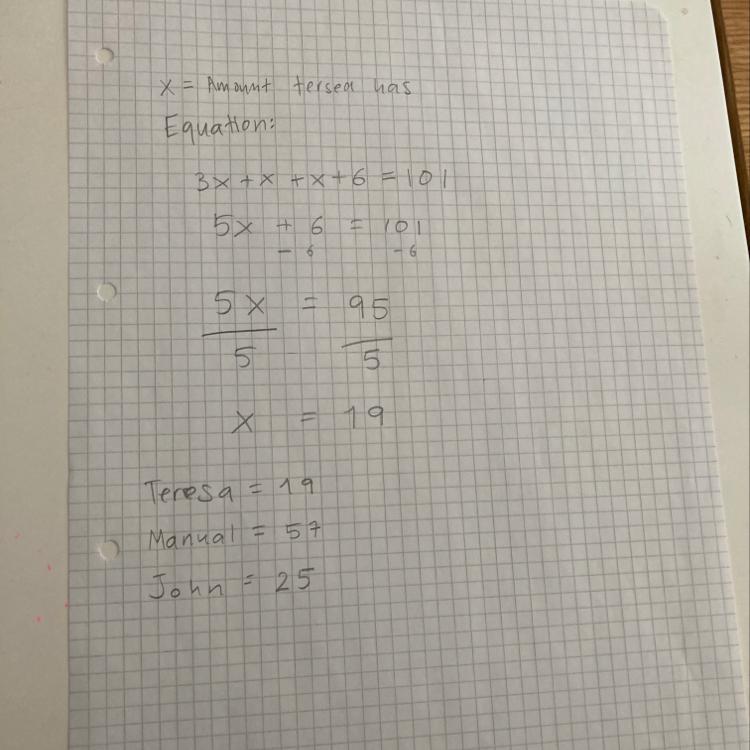 x = Amount tersea has
Equation:
3x + x + x + 6 = 101
5x + 6 = 101
- 6 - 6
5x = 95
5 5
x = 19
Teresa = 19
Manual = 57
John = 25